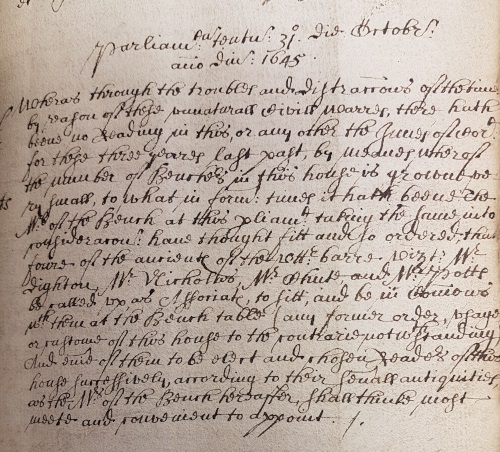 Parliam:ᵗᵘ tentu: 31º die Octobr:
año dn̄i: 1645
Wheras through the troubles and distracc̄ons of the time
by reason of these vnnaturall Civill warres, there hath
beene no Reading in this, or any other the Innes of Cor:ᵗ
for these three yeares last past, by meanes wherof
the number of Benchers in this house is growne ve=
ry small, to what in form: times it hath beene The
Mʳˢ of the Bench at this pliamᵗ taking the same into
consideracon: have thought fitt and so ordered, that
foure of the ancients of the vttʳ: barre vizt: Mʳ
Dighton, Mʳ Nicholas, Mʳ Chute and Mʳ Potts
be called vp as Associats, to sitt, and be in Com̄ons
wᵗʰ them at the Bench table (any former order, vsage
or custome of this house to the contrarie notwᵗʰstanding
And eūie of them to be elect and chosen Reader of this
house successively, according to their seūall antiquities
as the Mʳˢ of the Bench hereafter, shall thinke most
meete and convenient to appoint. /.